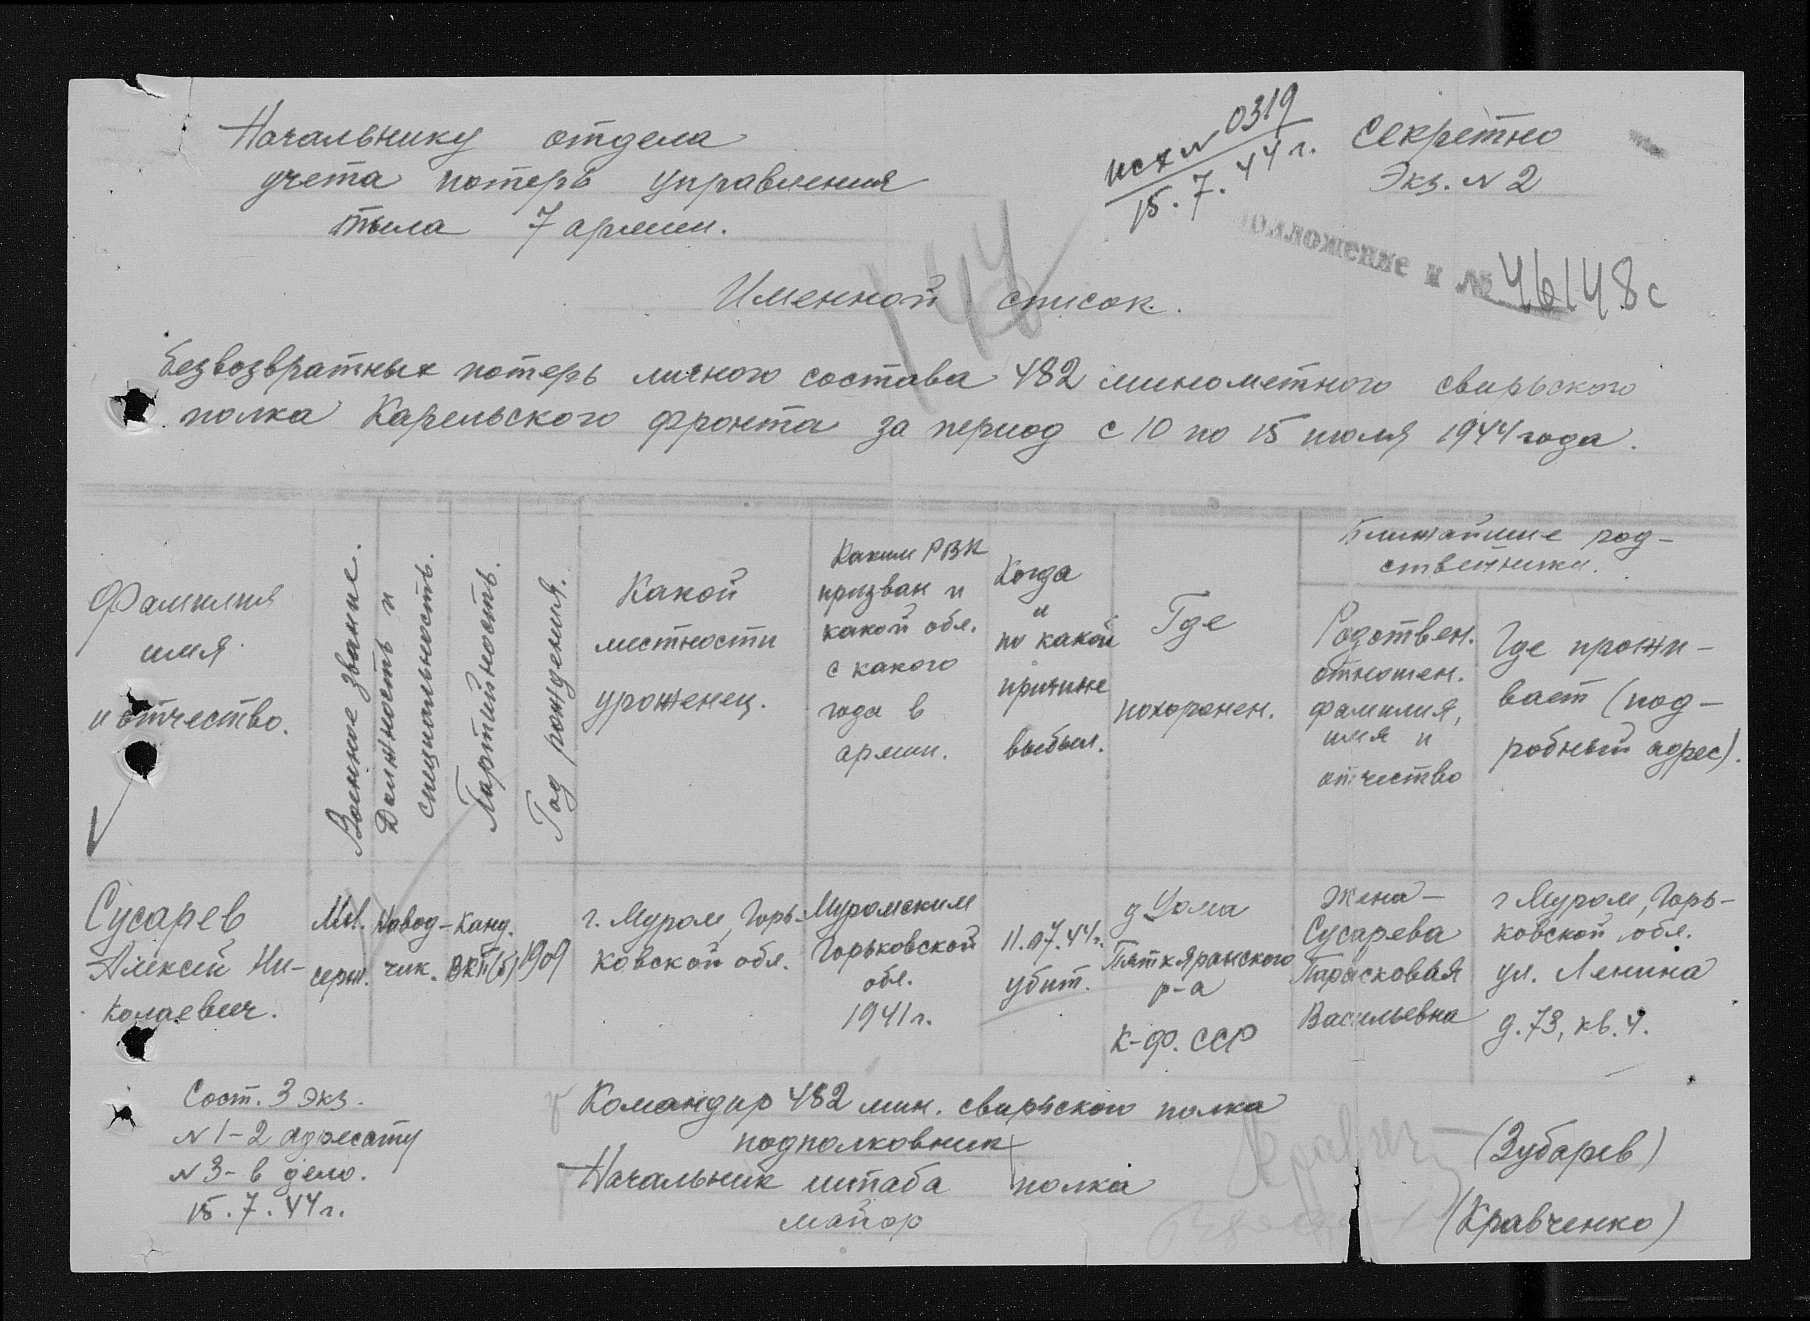 Начальнику отдела
учета потерь управления
тыла 7 армии.
исх № 0319
15.7.44 г.
Секретно
Экз. № 2
148
приложение к № 46148с
Именной список.
безвозвратных потерь личного состава 482 минометного свирьского
полка Карельского фронта за период с 10 по 15 июля 1944 года.
Фамилия
имя
и отчество.
Военное звание.
Должность и
специальность.
Партийность.
Год рождения.
Какой
местности
уроженец.
Каким РВК
призван и
какой обл.
с какого
года в
армии.
Когда
и
по какой
причине
выбыл.
Где
похоронен.
Ближайшие род-
ственники.
Родствен.
отношен.
фамилия,
имя и
отчество
Где прожи-
вает (под-
робный адрес).
Сусарев
Алексей Ни-
колаевич.
Мл.
серж.
Навод-
чик.
Канд.
ВКП(б)
1909
г. Муром, Горь-
ковской обл.
Муромским
Горьковской
обл.
1941 г.
11.07.44 г.
убит.
д Уома
Питкяранского
р-а
К-Ф. ССР
жена -
Сусарева
Парасковья
Васильевна
г Муром, Горь-
ковской обл.
ул. Ленина
д. 73, кв. 4.
Сост. 3 экз.
№ 1-2 адресату
№ 3 - в дело.
15.7.44 г.
Командир 482 мин. свирьского полка
подполковник
(Зубарев)
Начальник штаба полка
майор
(Кравченко)